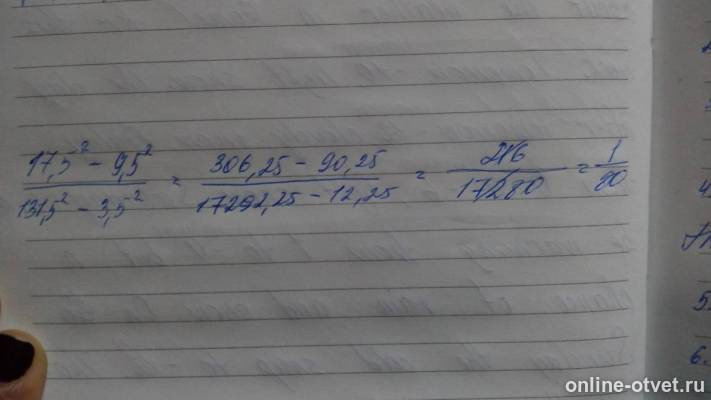 17,5² - 9,5² / 131,5² - 3,5² = 306,25 - 90,25 / 17292,25 - 12,25 = 216 / 17280 = 1 / 80
4.
5.
6.
online-otvet.ru